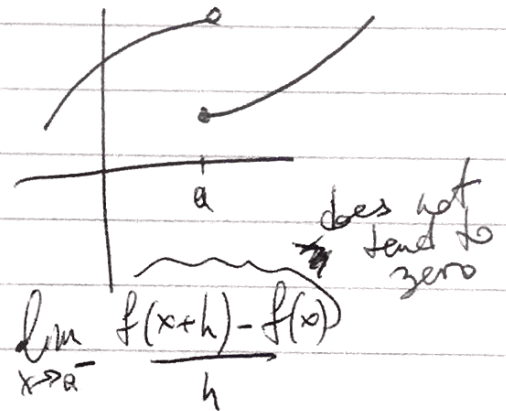 a
does not
tend to
zero
lim f(x+h) - f(x)
x→a⁻ h